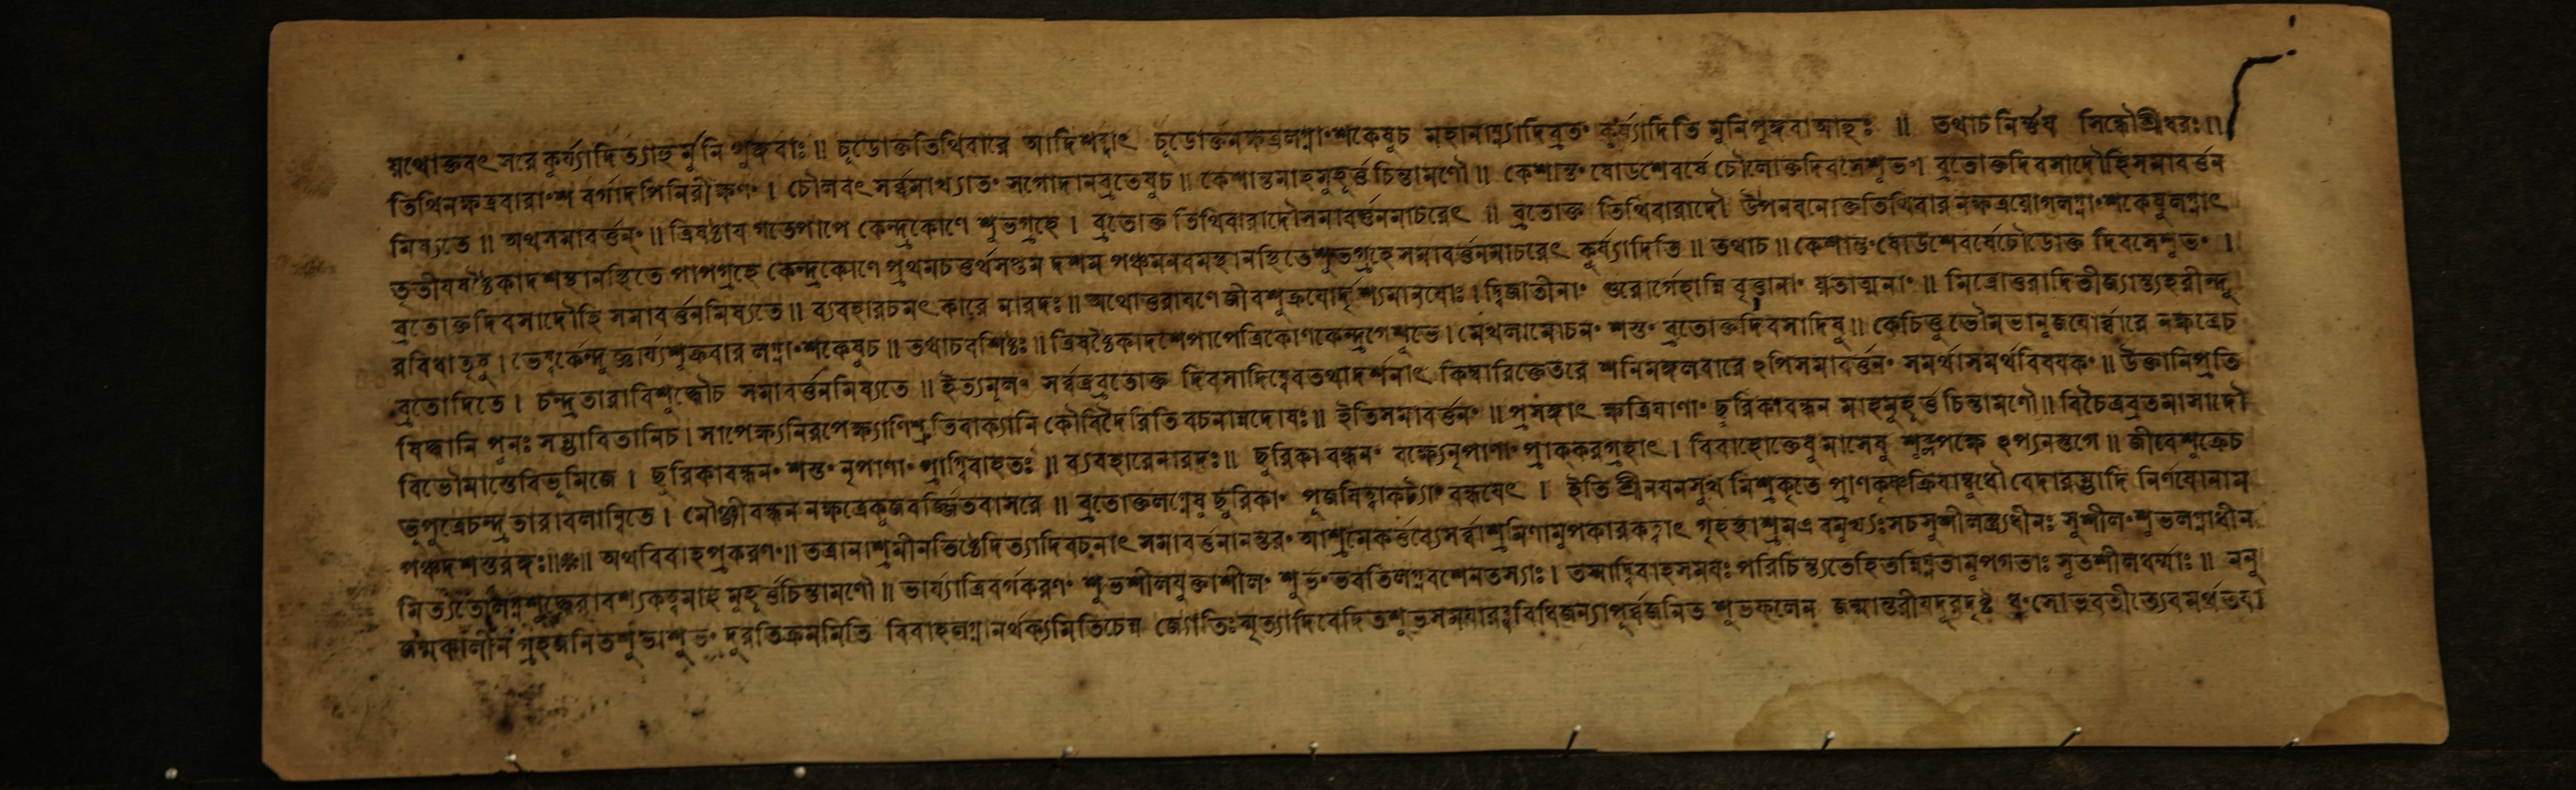 য়থোক্তবৎসরে কূর্য্যাদিত্যাহ র্মুনিপুঙ্গবাঃ॥ চূডোক্ততিথিবারে আদিশব্দাৎ চূডোক্তনক্ষত্রলগ্নাংশকেষুচ মহানাম্ন্যাদিব্রতং কুর্য্যাদিতি মুনিপুঙ্গবাআহুঃ ॥ তথাচ নির্ণ্ণয সিন্ধৌশ্রীধরঃ॥
তিথিনক্ষত্রবারাংশ বর্গাদপিনিরীক্ষণং। চৌলবৎ সর্ব্বমাখ্যাতং সগোদানব্রতেষুচ॥ কেশান্তমাহমুহূর্ত্তচিন্তামণৌ॥ কেশান্তং ষোডশেবর্ষে চৌলোক্তদিবসেশুভং ব্রতোক্তদিবসাদৌহিসমাবর্ত্তন
মিষ্যতে॥ অথসমাবর্ত্তনং॥ ত্রিষষ্ঠায গতেপাপে কেন্দ্রকোণে শুভগ্রহে। ব্রতোক্ত তিথিবারাদৌসমাবর্ত্তনমাচরেৎ ॥ ব্রতোক্ত তিথিবারাদৌ উপনযনোক্ততিথিবার নক্ষত্রযোগলগ্নাংশকেষুলগ্নাৎ
তৃতীযষষ্ঠৈকাদশস্থানস্থিতে পাপগ্রহে কেন্দ্রকোণে প্রথমচতুর্থসপ্তম দশম পঞ্চমনবমস্থানস্থিতেশুভগ্রহে সমাবর্ত্তনমাচরেৎ কূর্য্যাদিতি॥ তথাচ॥ কেশান্তংষোডশেবর্ষেচৌডোক্ত দিবসেশুভং।
ব্রতোক্তদিবসাদৌহি সমাবর্ত্তনমিষ্যতে॥ ব্যবহারচমৎকারে নারদঃ॥ অথোত্তরাযণে জীবশুক্রযোর্দৃশ্যমানযোঃ। দ্বিজাতীনাং গুরোর্গেহান্নি বৃত্তানাং য়তাত্মনাং॥ মিত্রোত্তরাদিতীজ্যান্ত্যহরীন্দু
রবিধাতৃষু। ভেষ্বর্কেন্দু জ্ঞার্য্যশুক্রবার লগ্নাংশকেষুচ॥ তথাচবশিষ্ঠঃ॥ ত্রিষষ্ঠৈকাদশেপাপেত্রিকোণকেন্দ্রগেশুভে। মেখলামোচনং শস্তং ব্রতোক্তদিবসাদিষু॥ কেচিত্তুভৌমভানুজযোর্ব্বারে নক্ষত্রেচ
ব্রতোদিতে। চন্দ্রতারাবিশুদ্ধৌচ সমাবর্ত্তনমিষ্যতে॥ ইত্যমূলং সর্ব্বত্রব্রতোক্ত দিবসাদিষ্বেবতথাদর্শনাৎ কিম্বারিক্তেতরে শনিমঙ্গলবারে ঽপিসমাবর্ত্তনং সমর্থাসমর্থবিষযকং॥ উক্তানিপ্রতি
ষিদ্ধানি পুনঃ সম্ভাবিতানিচ। সাপেক্ষ্যনিরপেক্ষ্যাণিশ্রুতিবাক্যানি কৌবিদৈরিতি বচনান্নদোষঃ॥ ইতিসমাবর্ত্তনং॥ প্রসঙ্গাৎ ক্ষত্রিযাণাং ছুরিকাবন্ধন মাহমুহূর্ত্তচিন্তামণৌ॥ বিচৈত্রব্রতমাসাদৌ
বিভৌমাস্তেবিভূমিজে। ছুরিকাবন্ধনং শস্তং নৃপাণাং প্রাগ্বিবাহতঃ॥ ব্যবহারেনারদঃ॥ ছুরিকাবন্ধনং বক্ষ্যেনৃপাণাং প্রাক্করগ্রহাৎ। বিবাহোক্তেষুমাসেষু শুক্লপক্ষে ঽপ্যনস্তগে॥ জীবেশুক্রেচ
ভূপুত্রেচন্দ্রতারাবলান্বিতে। মৌঞ্জীবন্ধন নক্ষত্রেকুজবর্জ্জিতবাসরে॥ ব্রতোক্তলগ্নেষু ছুরিকাং পূজযিত্বাকট্যাং বন্ধযেৎ। ইতি শ্রীনযনসুখ মিশ্রকৃতে প্রাণকৃষ্ণক্রিযাম্বুধৌ বেদারম্ভাদি নির্ণযোনাম
পঞ্চদশস্তরঙ্গঃ॥*॥ অথবিবাহপ্রকরণং॥ তত্রানাশ্রমীনতিষ্ঠেদিত্যাদিবচনাৎ সমাবর্ত্তনানন্তরং আশ্রমেকর্ত্তব্যেসর্ব্বাশ্রমিণামুপকারকত্বাৎ গৃহস্থাশ্রমএ বমুখ্যঃসচসুশীলস্ত্র্যধীনঃ সুশীলংশুভলগ্নাধীন
মিত্যতোলগ্নশুদ্ধেরাবশ্যকত্বমাহ মুহূর্ত্তচিন্তামণৌ॥ ভার্য্যাত্রিবর্গকরণং শুভশীলযুক্তাশীলং শুভংভবতিলগ্নবশেনতস্যাঃ। তস্মাদ্বিবাহসমযঃ পরিচিন্ত্যতেহিতন্নিঘ্নতামুপগতাঃ সুতশীলধর্ম্মাঃ॥ ননু
জন্মকালীন গ্রহজনিতশুভাশুভং দুরতিক্রমমিতি বিবাহলগ্নানর্থক্যমিতিচেন্ন জ্যোতিঃস্মৃত্যাদিবেদিতশুভসমযারব্ধবিধিজন্যাপূর্ব্বজনিত শুভফলেন জন্মান্তরীযদূরদৃষ্ট ধ্বংসোভবতীত্যেবমর্থতযা